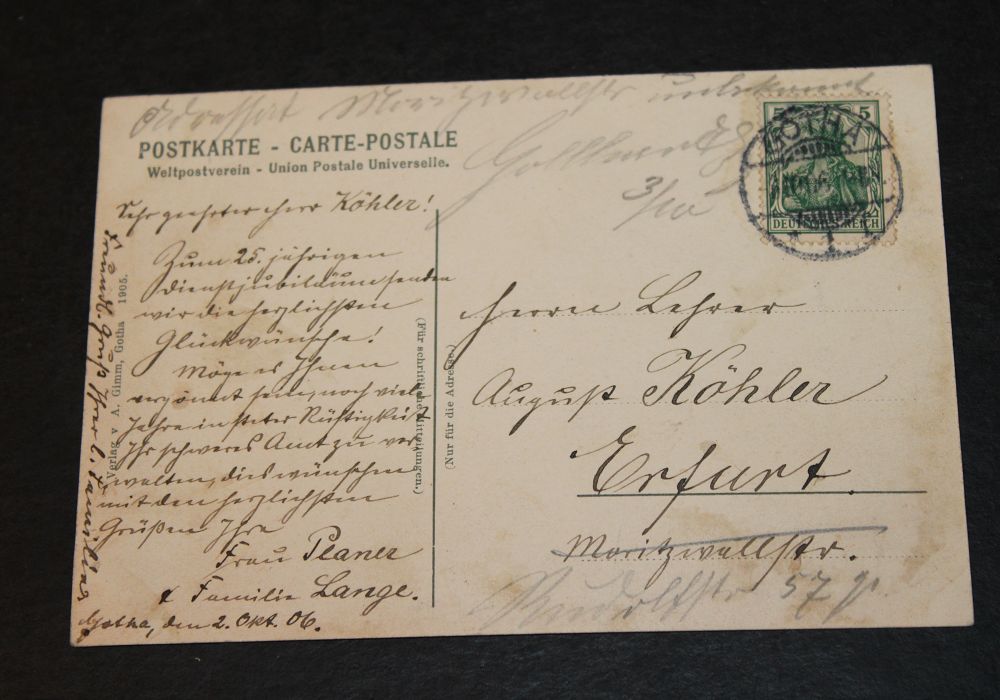 Adressat Moritzwallstr unbekannt
3/10
POSTKARTE - CARTE-POSTALE
Weltpostverein - Union Postale Universelle.
5 5
DEUTSCHES REICH
GOTHA
1
Sehr geehrter Herr Köhler!
Zum 25. jährigen
Dienstjubiläum senden
wir die herzlichsten
Glückwünsche!
Möge es Ihnen
vergönnt sein, noch viele
Jahre in steter Rüstigkeit
Ihr schweres Amt zu ver
walten, dies wünschen
mit den herzlichsten
Grüßen Ihre
Frau Planer
& Familie Lange.
Gotha, den 2. Okt. 06.
Freundl. Gruß Ihrer l. Familie
Verlag v. A. Gimm, Gotha 1905.
(Für schriftliche Mitteilungen.)
(Nur für die Adresse.)
Herrn Lehrer
August Köhler
Erfurt.
Moritzwallstr.
Rudolfstr 57